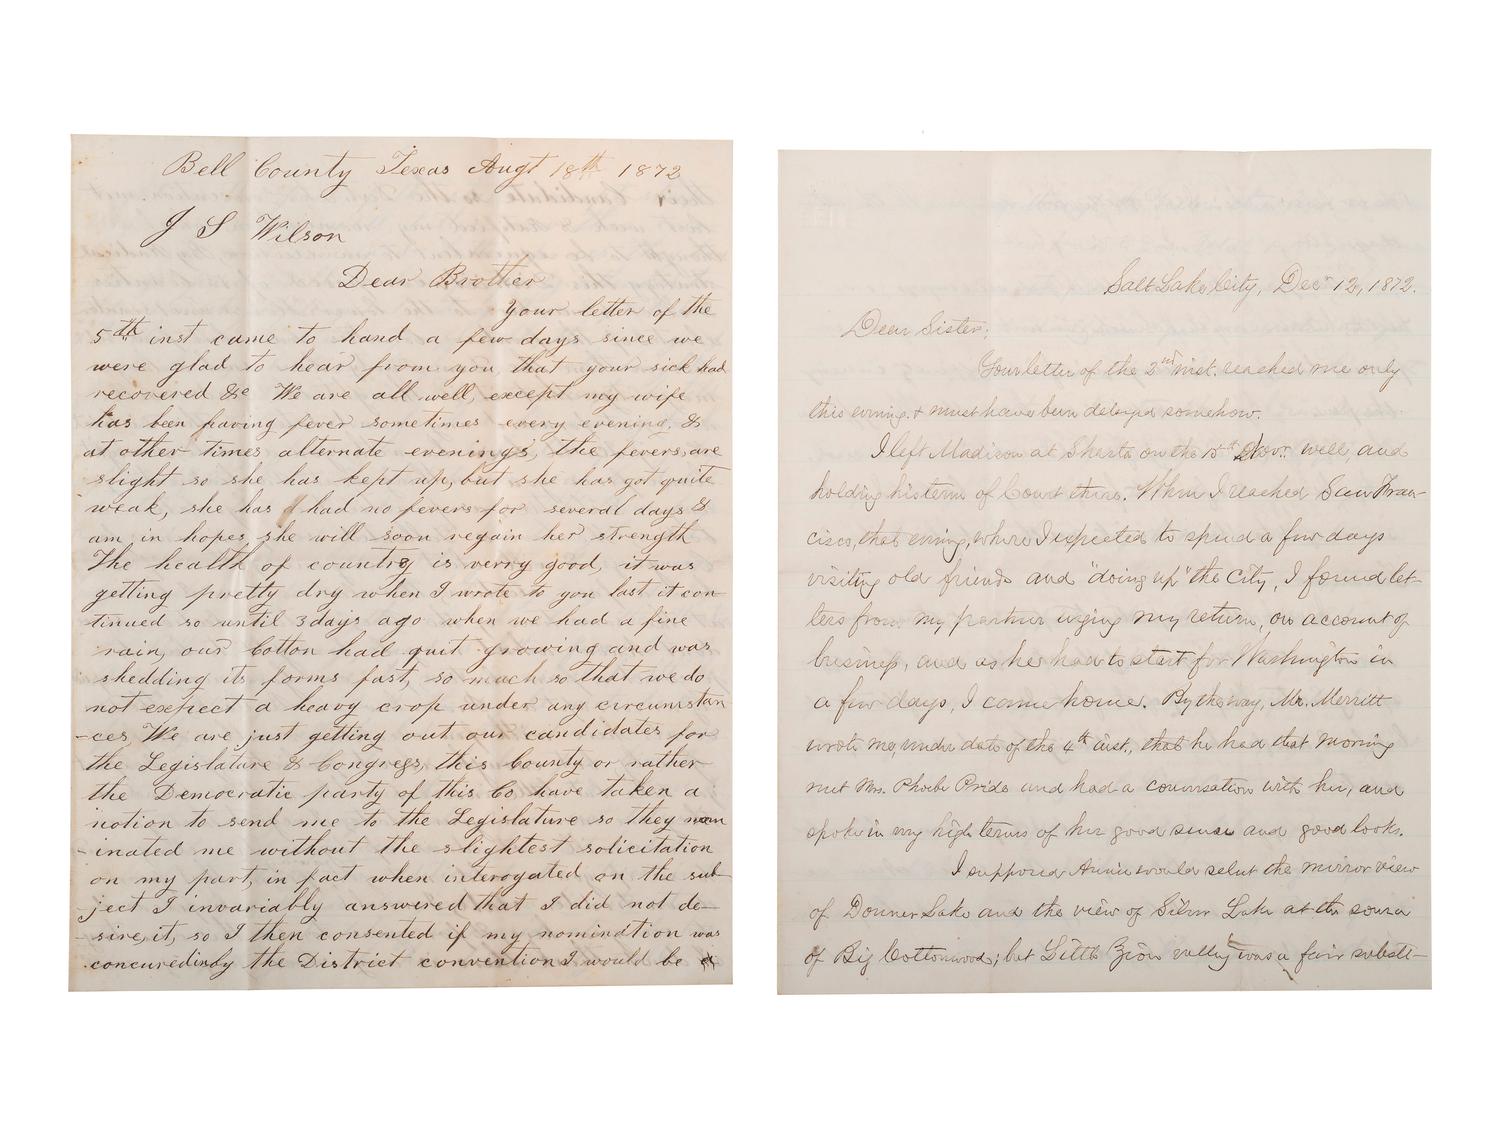 Bell County Texas Augt 18th 1872
J S Wilson
Dear Brother
Your letter of the
5th inst came to hand a few days since we
were glad to hear from you that your sick had
recovered &c We are all well, except my wife
has been having fever sometimes every evening, &
at other times alternate evenings, the fevers are
slight so she has kept up, but she has got quite
weak, she has had no fevers for several days &
am in hopes she will soon regain her strength
The health of country is verry good, it was
getting pretty dry when I wrote to you last it con-
tinued so until 3 days ago when we had a fine
rain, our Cotton had quit growing and was
shedding its forms fast, so much so that we do
not expect a heavy crop under any circumstan
-ces, We are just getting out our candidates for
the Legislature & Congress, this County or rather
the Democratic party of this Co have taken a
notion to send me to the Legislature so they nom
-inated me without the slightest solicitation
on my part, in fact when interogated on the sub-
-ject I invariably answered that I did not de-
-sire it, so I then consented if my nomination was
concured in by the District convention I would be a
Salt Lake City, Decr 12, 1872.
Dear Sister:
Your letter of the 2nd inst. reached me only
this evening, & must have been delayed somehow.
I left Madison at Shasta on the 15th Nov. well, and
holding his term of Court there. When I reached San Fran-
cisco, that evening, where I expected to spend a few days
visiting old friends and "doing up" the City, I found let-
ters from my partner urging my return, on account of
business, and as he had to start for Washington in
a few days, I came home. By the way, Mr. Merritt
wrote me, under date of the 4th inst., that he had that morning
met Mrs. Phoebe Pride and had a conversation with her, and
spoke in very high terms of her good sense and good looks.
I supposed Annie would select the mirror view
of Donner Lake and the view of Silver Lake at the source
of Big Cottonwood; but Little Zion valley was a fair substi-